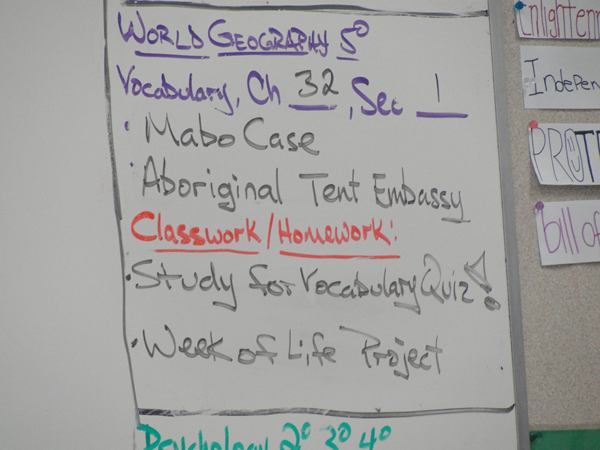 WORLD GEOGRAPHY 5°
Vocabulary, Ch 32, Sec 1
• Mabo Case
• Aboriginal Tent Embassy
Classwork/Homework:
• Study for Vocabulary Quiz!
• Week of Life Project
Psychology 2° 3° 4°
Enlighten
Indepen
PROT
bill of